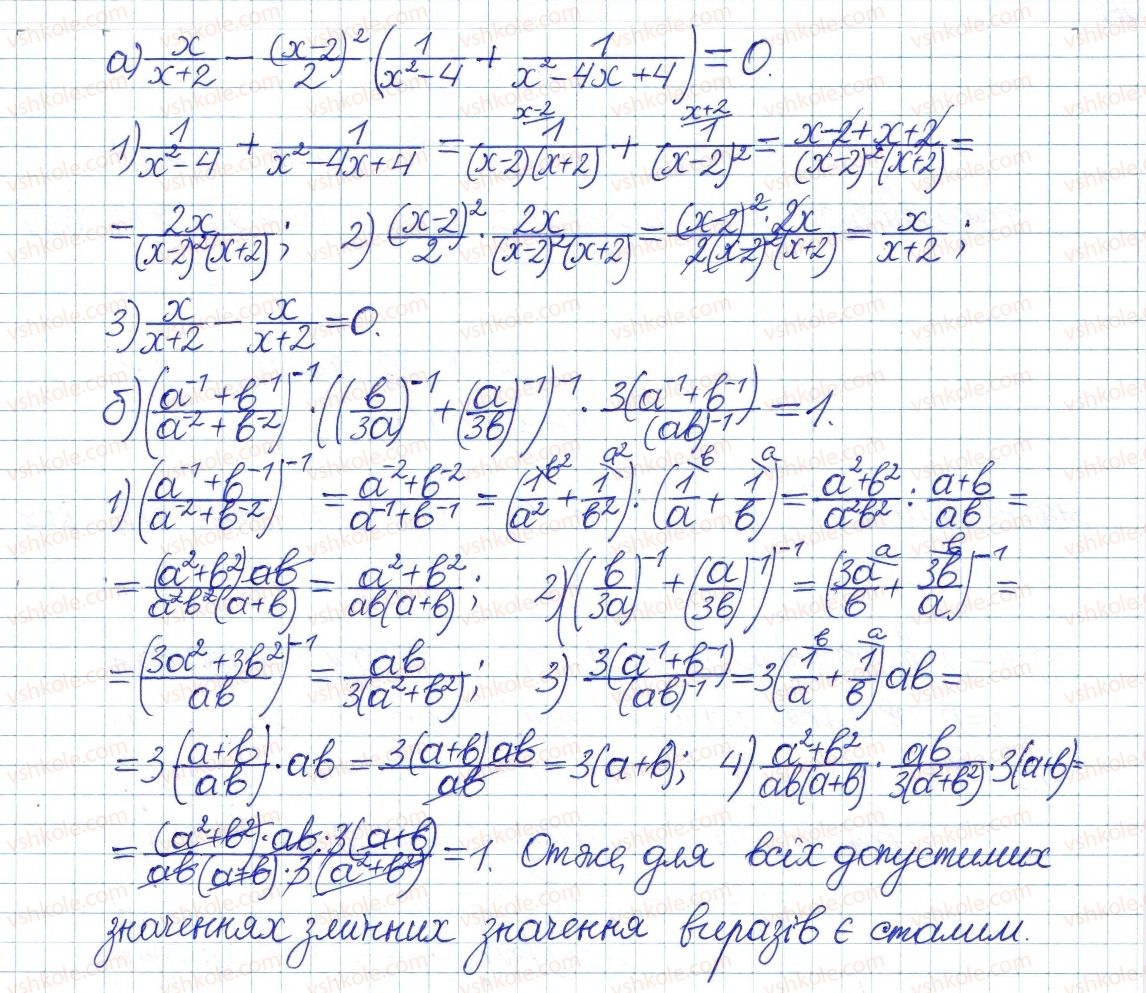 а) x/(x+2) − (x−2)²/2 · (1/(x²−4) + 1/(x²−4x+4)) = 0.
1) 1/(x²−4) + 1/(x²−4x+4) = 1/((x−2)(x+2)) (x−2) + 1/(x−2)² (x+2) = (x−2+x+2)/((x−2)²(x+2)) =
= 2x/((x−2)²(x+2)); 2) (x−2)²/2 · 2x/((x−2)²(x+2)) = ((x−2)²·2x)/(2(x−2)²(x+2)) = x/(x+2);
3) x/(x+2) − x/(x+2) = 0.
б) ((a⁻¹+b⁻¹)/(a⁻²+b⁻²))⁻¹ · ((b/3a)⁻¹ + (a/3b)⁻¹)⁻¹ · 3(a⁻¹+b⁻¹)/(ab)⁻¹ = 1.
1) ((a⁻¹+b⁻¹)/(a⁻²+b⁻²))⁻¹ = (a⁻²+b⁻²)/(a⁻¹+b⁻¹) = (1/a² (b²) + 1/b² (a²)) : (1/a (b) + 1/b (a)) = (a²+b²)/(a²b²) : (a+b)/(ab) =
= ((a²+b²)ab)/(a²b²(a+b)) = (a²+b²)/(ab(a+b)); 2) ((b/3a)⁻¹ + (a/3b)⁻¹)⁻¹ = (3a/b (a) + 3b/a (b))⁻¹ =
= ((3a²+3b²)/ab)⁻¹ = ab/(3(a²+b²)); 3) 3(a⁻¹+b⁻¹)/(ab)⁻¹ = 3(1/a (b) + 1/b (a))ab =
= 3((a+b)/ab)·ab = 3(a+b)ab/ab = 3(a+b); 4) (a²+b²)/(ab(a+b)) · ab/(3(a²+b²)) · 3(a+b) =
= ((a²+b²)·ab·3(a+b))/(ab(a+b)·3(a²+b²)) = 1. Отже, для всіх допустимих
значеннях змінних значення виразів є сталим.